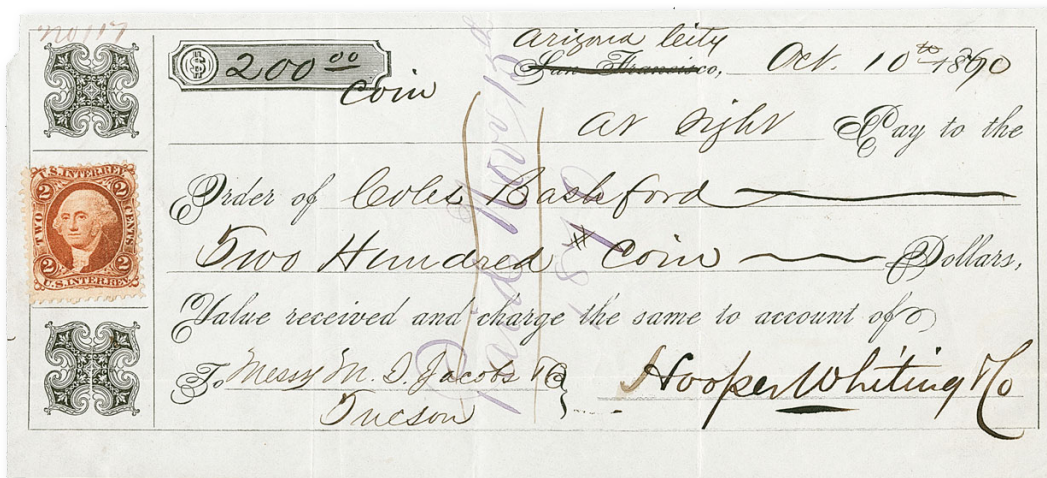 No 17
$ 200 00
coin
Arizona City
San Francisco, Oct. 10th 1870
At sight Pay to the
Order of Coles Bashford
Two Hundred # Coin Dollars,
Value received and charge the same to account of
To Messrs M. I. Jacobs & Co
Tucson
Hooper Whiting & Co
U.S. INTER. REV.
2 2
TWO CENTS
2 2
U.S. INTER. REV.
Paid Nov 12